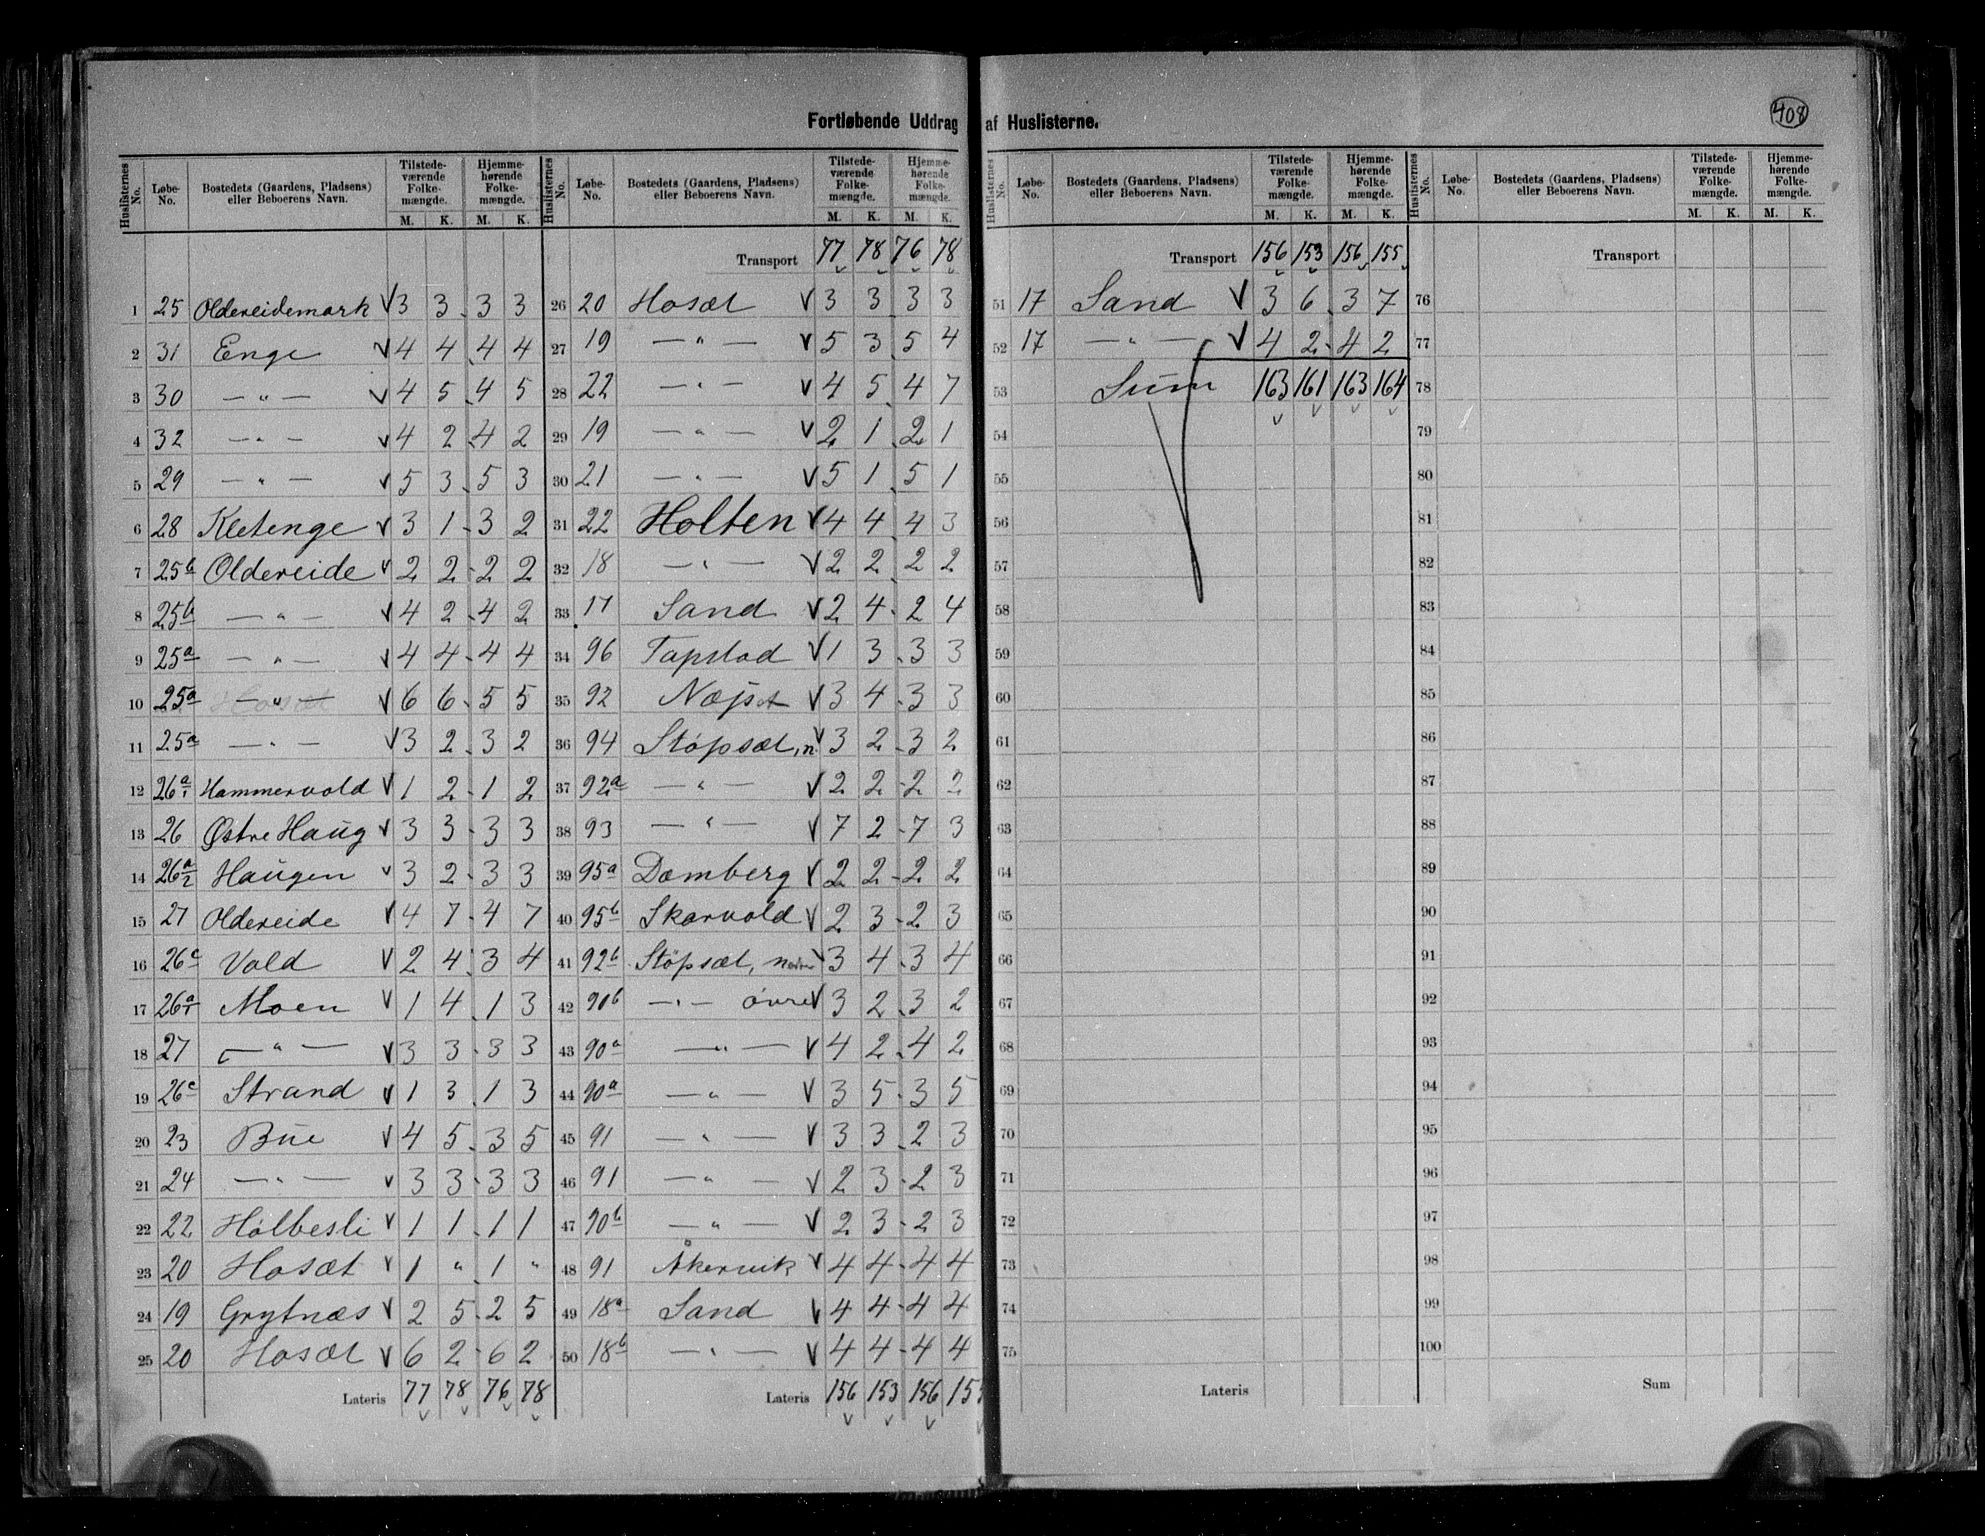 Fortløbende Uddrag af Huslisterne.
408
Huslisternes No. Løbe-No. Bostedets (Gaardens, Pladsens) eller Beboerens Navn. Tilstedeværende Folkemængde. M. K. Hjemmehørende Folkemængde. M. K.
1 25 Oldereidemark V 3 3 3 3
2 31 Enge V 4 4 4 4
3 30 — " — V 4 5 4 5
4 32 — " — V 4 2 4 2
5 29 — " — V 5 3 5 3
6 28 Kletenge V 3 1 3 2
7 25b Oldereide V 2 2 2 2
8 25b — " — V 4 2 4 2
9 25a — " — V 4 4 4 4
10 25a — " — V 6 6 5 5
11 25a — " — V 3 2 3 2
12 26a Hammervold V 1 2 1 2
13 26 Østre Haug V 3 3 3 3
14 26a Haugen V 3 2 3 3
15 27 Oldereide V 4 7 4 7
16 26c Vold V 2 4 3 4
17 26a Moen V 1 4 1 3
18 27 — " — V 3 3 3 3
19 26c Strand V 1 3 1 3
20 23 Bue V 4 5 3 5
21 24 — " — V 3 3 3 3
22 22 Holbesli V 1 1 1 1
23 20 Hosæt V 1 " 1 "
24 19 Grytnæs V 2 5 2 5
25 20 Hosæt V 6 2 6 2
Lateris 77 78 76 78
Huslisternes No. Løbe-No. Bostedets (Gaardens, Pladsens) eller Beboerens Navn. Tilstedeværende Folkemængde. M. K. Hjemmehørende Folkemængde. M. K.
Transport 77 78 76 78
26 20 Hosæt V 3 3 3 3
27 19 — " — V 5 3 5 4
28 22 — " — V 4 5 4 7
29 19 — " — V 2 1 2 1
30 21 — " — V 5 1 5 1
31 22 Holten V 4 4 4 3
32 18 — " — V 2 2 2 2
33 17 Sand V 2 4 2 4
34 96 Tapstad V 1 3 3 3
35 92 V 3 4 3 3
36 94 Støpsæt, n. V 3 2 3 2
37 92a — " — V 2 2 2 2
38 93 — " — V 7 2 7 3
39 95a Dæmberg V 2 2 2 2
40 95b Skarvold V 2 3 2 3
41 92b Støpsæt, nedre V 3 4 3 4
42 90b — " — øvre V 3 2 3 2
43 90a — " — V 4 2 4 2
44 90a — " — V 3 5 3 5
45 91 — " — V 3 3 2 3
46 91 — " — V 2 3 2 3
47 90b — " — V 2 3 2 3
48 91 Åkervik V 4 4 4 4
49 18a Sand V 4 4 4 4
50 18b — " — V 4 4 4 4
Lateris 156 153 156
Huslisternes No. Løbe-No. Bostedets (Gaardens, Pladsens) eller Beboerens Navn. Tilstedeværende Folkemængde. M. K. Hjemmehørende Folkemængde. M. K.
Transport 156 153 156 155
51 17 Sand V 3 6 3 7
52 17 — " — V 4 2 4 2
53 Sum 163 161 163 164
54
55
56
57
58
59
60
61
62
63
64
65
66
67
68
69
70
71
72
73
74
75
Lateris
Huslisternes No. Løbe-No. Bostedets (Gaardens, Pladsens) eller Beboerens Navn. Tilstedeværende Folkemængde. M. K. Hjemmehørende Folkemængde. M. K.
Transport
76
77
78
79
80
81
82
83
84
85
86
87
88
89
90
91
92
93
94
95
96
97
98
99
100
Sum